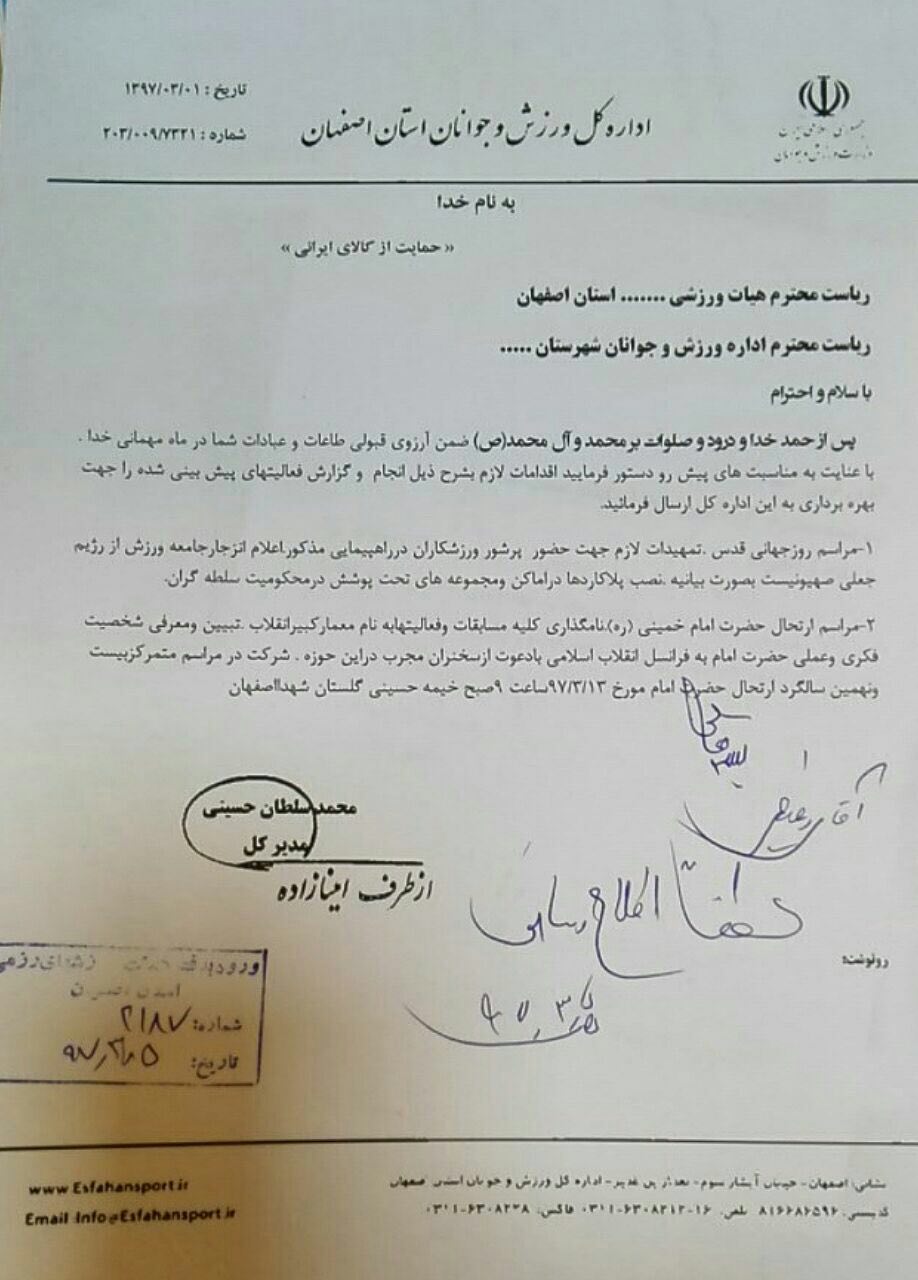 جمهوری اسلامی ایران
وزارت ورزش و جوانان
اداره کل ورزش و جوانان استان اصفهان
تاریخ : ۱۳۹۷/۰۳/۰۱
شماره : ۲۰۳/۰۰۹/۷۳۲۱
به نام خدا
« حمایت از کالای ایرانی »
ریاست محترم هیات ورزشی ....... استان اصفهان
ریاست محترم اداره ورزش و جوانان شهرستان .....
با سلام و احترام
پس از حمد خدا و درود و صلوات بر محمد و آل محمد(ص) ضمن آرزوی قبولی طاعات و عبادات شما در ماه مهمانی خدا .
با عنایت به مناسبت های پیش رو دستور فرمایید اقدامات لازم بشرح ذیل انجام و گزارش فعالیتهای پیش بینی شده را جهت
بهره برداری به این اداره کل ارسال فرمائید.
۱-مراسم روزجهانی قدس .تمهیدات لازم جهت حضور پرشور ورزشکاران درراهپیمایی مذکور.اعلام انزجارجامعه ورزش از رژیم
جعلی صهیونیست بصورت بیانیه .نصب پلاکاردها دراماکن ومجموعه های تحت پوشش درمحکومیت سلطه گران.
۲-مراسم ارتحال حضرت امام خمینی (ره).نامگذاری کلیه مسابقات وفعالیتهابه نام معمارکبیرانقلاب .تبیین ومعرفی شخصیت
فکری وعملی حضرت امام به فرانسل انقلاب اسلامی بادعوت ازسخنران مجرب دراین حوزه . شرکت در مراسم متمرکزبیست
ونهمین سالگرد ارتحال حضرت امام مورخ ۹۷/۳/۱۳ساعت ۹صبح خیمه حسینی گلستان شهدااصفهان
محمد سلطان حسینی
مدیر کل
از طرف امینازاده
آقای
لطفاً اطلاع رسانی
۹۷،۳،۵
رونوشت:
ورود به دفتر هیئت ورزشهای رزمی
استان اصفهان
شماره: ۲۱۸۷
تاریخ: ۹۷،۳،۵
نشانی: اصفهان- خیابان آبشار سوم- بعد از پل غدیر- اداره کل ورزش و جوانان استان اصفهان
کدپستی: ۸۱۶۶۸۶۵۹۶ تلفن: ۱۶-۶۳۰۸۲۱۲-۰۳۱۱ فاکس: ۶۳۰۸۲۳۸-۰۳۱۱
www Esfahansport.ir
Email :Info@Esfahansport.ir